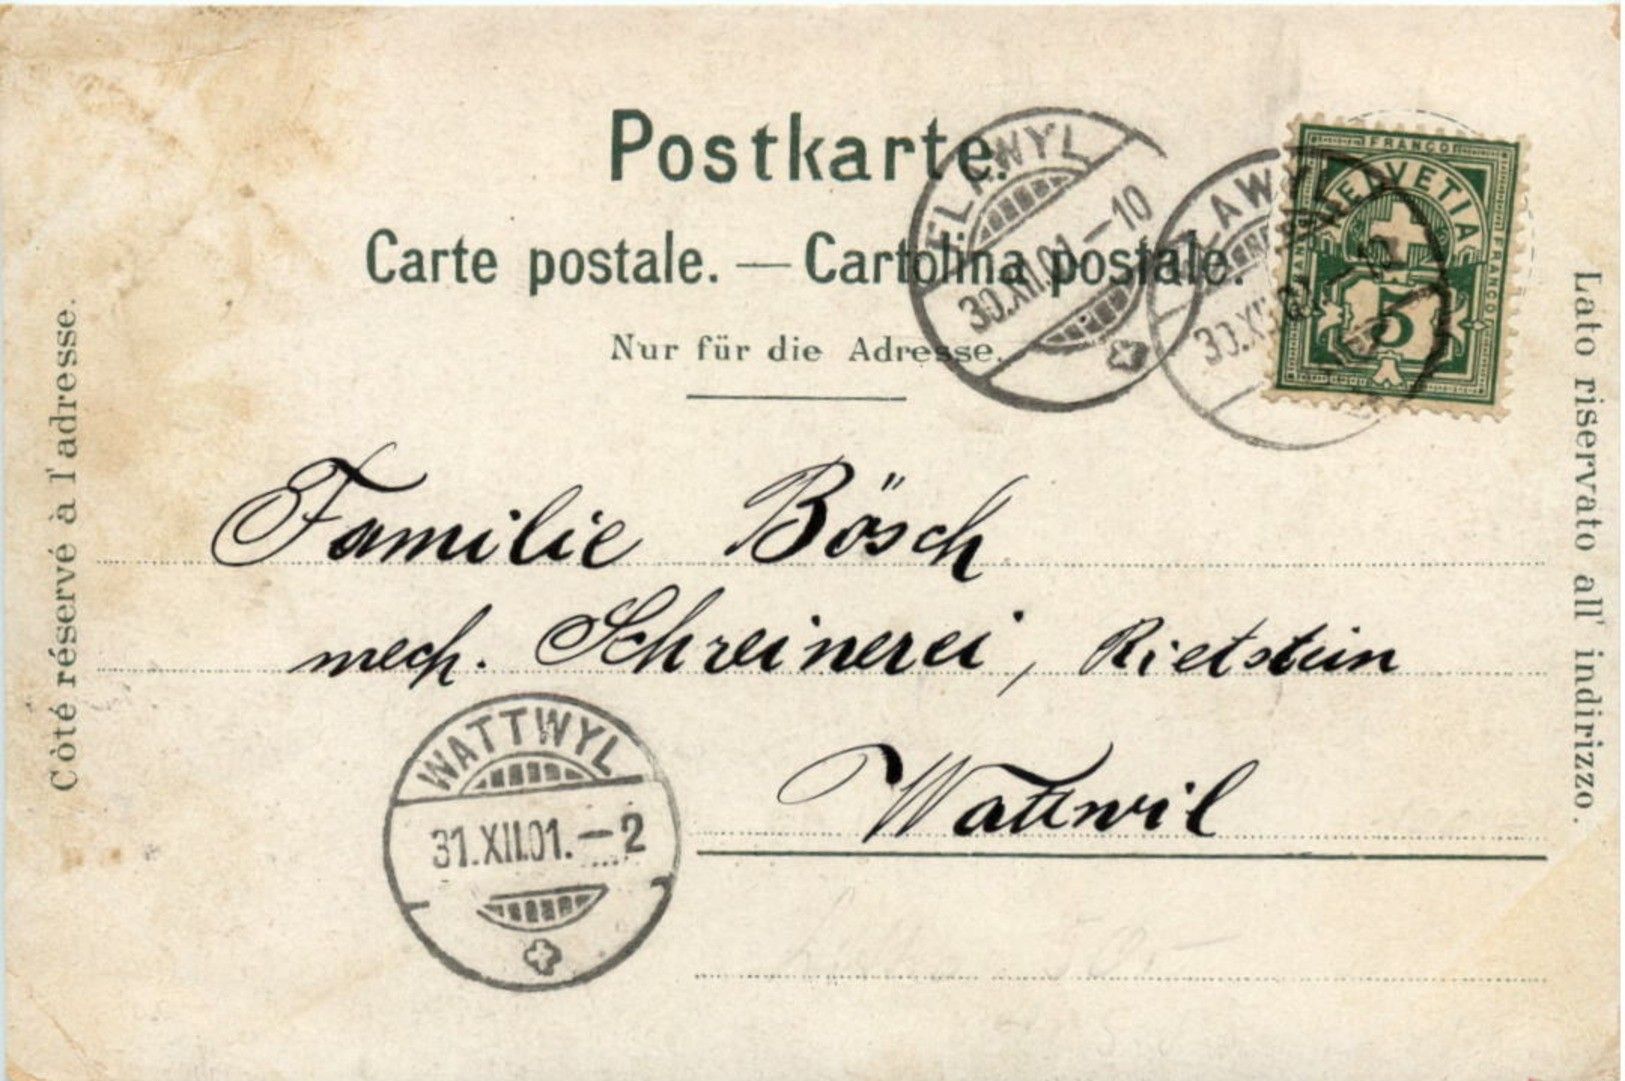 Postkarte.
Carte postale. — Cartolina postale.
Nur für die Adresse.
Côté réservé à l'adresse.
Lato riservato all' indirizzo.
FLAWYL
30.XII.01.-10
FLAWYL
30.XII.01.-10
FRANCO
HELVETIA
FRANCO
5
Familie Bösch
mech. Schreinerei, Rietstein
Wattwil
WATTWYL
31.XII.01.-2